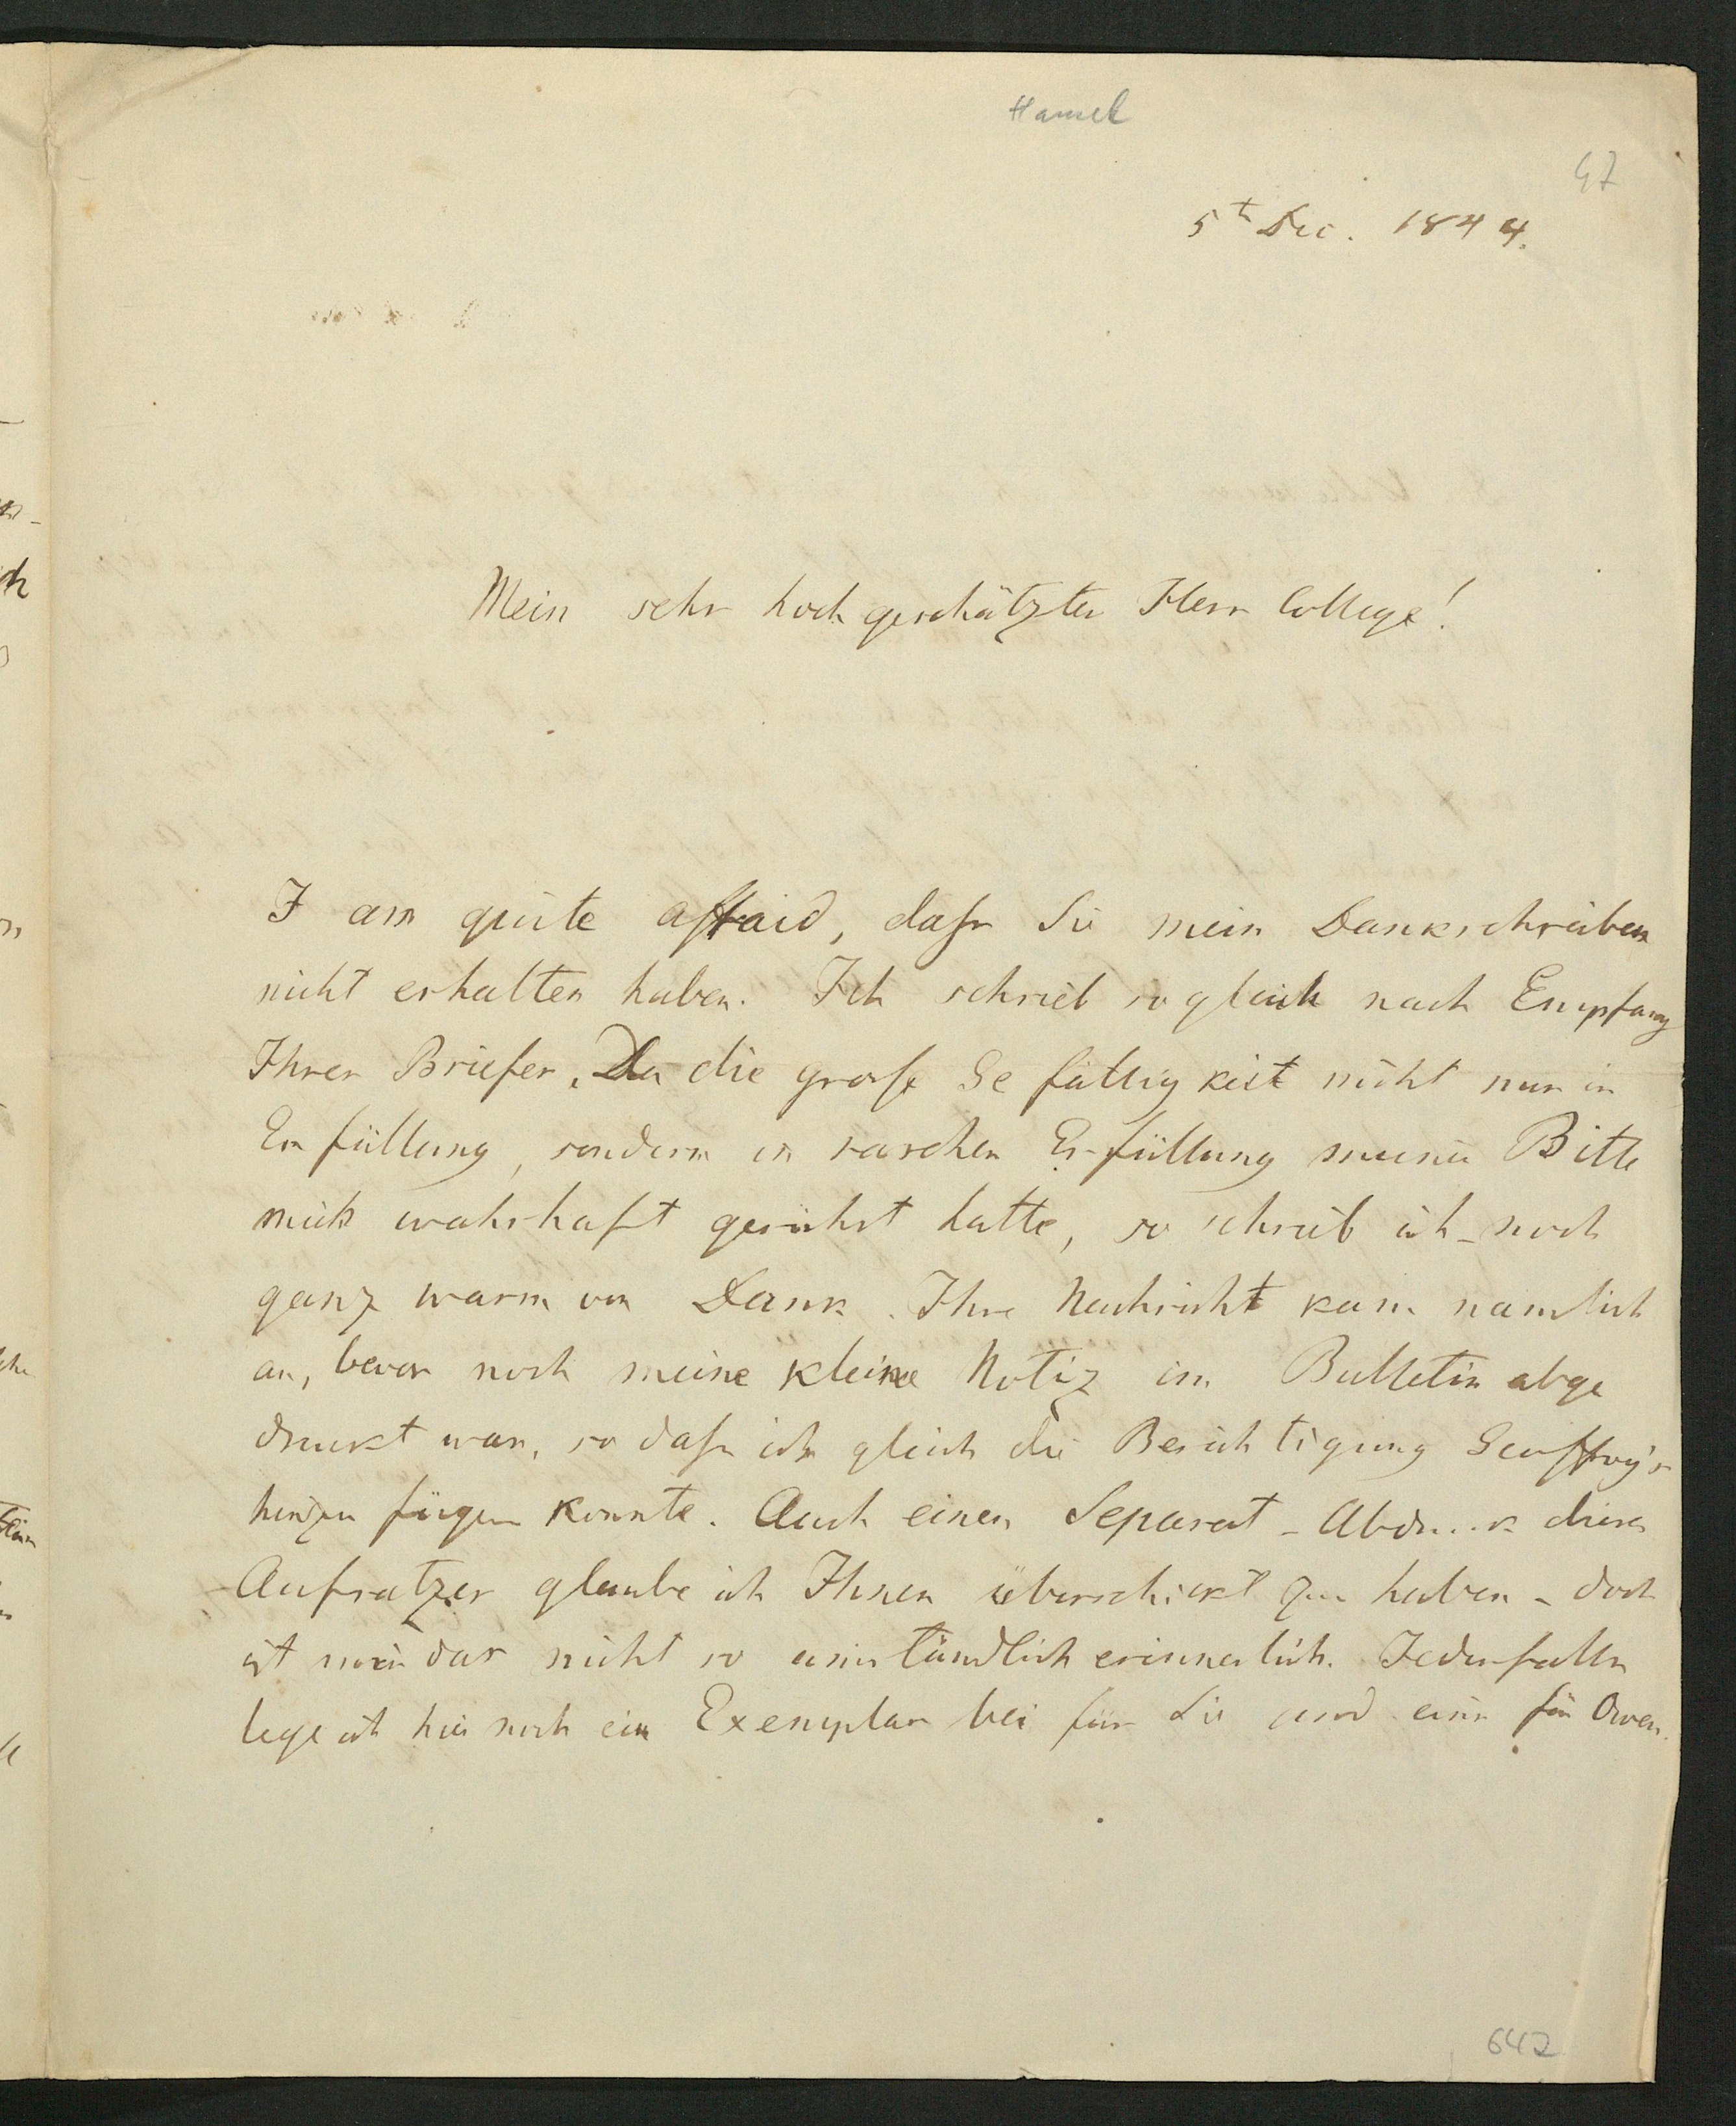 Hamel
47
5th Dec. 1844.
Mein sehr hochgeschätzter Herr College!
I am quite affraid, dass Sie mein Dankschreiben
nicht erhalten haben. Ich schrieb sogleich nach Empfang
Ihres Briefes. Da die grosse Gefälligkeit nicht nur in
Erfüllung, sondern in raschen Erfüllung meiner Bitte
mich wahrhaft gerührt hatte, so schrieb ich noch
ganz warm von Dank. Ihre Nachricht kam namlich
an, bevor noch meine kleine Notiz im Bulletin abge
druckt war, so dass ich gleich die Berichtigung Geoffroy's
hinzu fügen konnte. Auch einen Separat-Abdruck dieses
Aufsatzes glaube ich Ihnen überschickt zu haben - doch
ist mir das nicht so umständlich erinnerlich. Jedenfalls
lege ich hier noch ein Exemplar bei für Sie und eins für Owen.
642